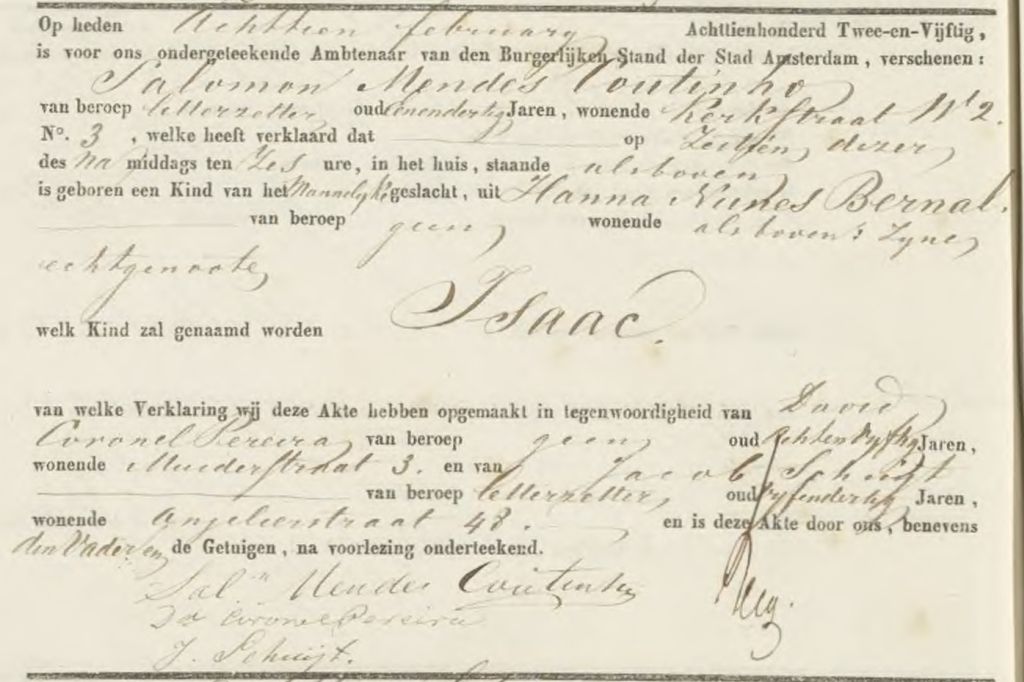 Op heden Achttien february Achttienhonderd Twee-en-Vijftig,
is voor ons ondergeteekende Ambtenaar van den Burgerlijken Stand der Stad Amsterdam, verschenen:
Salomon Mendes Coutinho
van beroep letterzetter oud Eenendertig Jaren, wonende Kerkstraat
No. 3, welke heeft verklaard dat op Zestien dezer
des Na middags ten Zes ure, in het huis, staande alsboven
is geboren een Kind van het Mannelyke geslacht, uit Hanna Nunes Bernal.
van beroep geen wonende alsboven: Zyne
echtgenoote
welk Kind zal genaamd worden Isaac.
van welke Verklaring wij deze Akte hebben opgemaakt in tegenwoordigheid van David
Coronel Pereira van beroep geen oud achtenvyftig Jaren,
wonende Muiderstraat 3. en van Jacob Schuijt
van beroep letterzetter, oud vyfendertig Jaren,
wonende Anjelierstraat 48. en is deze Akte door ons, benevens
den Vader en de Getuigen, na voorlezing onderteekend.
Sal.n Mendes Coutinho
Da Coronel Pereira
J. Schuijt.